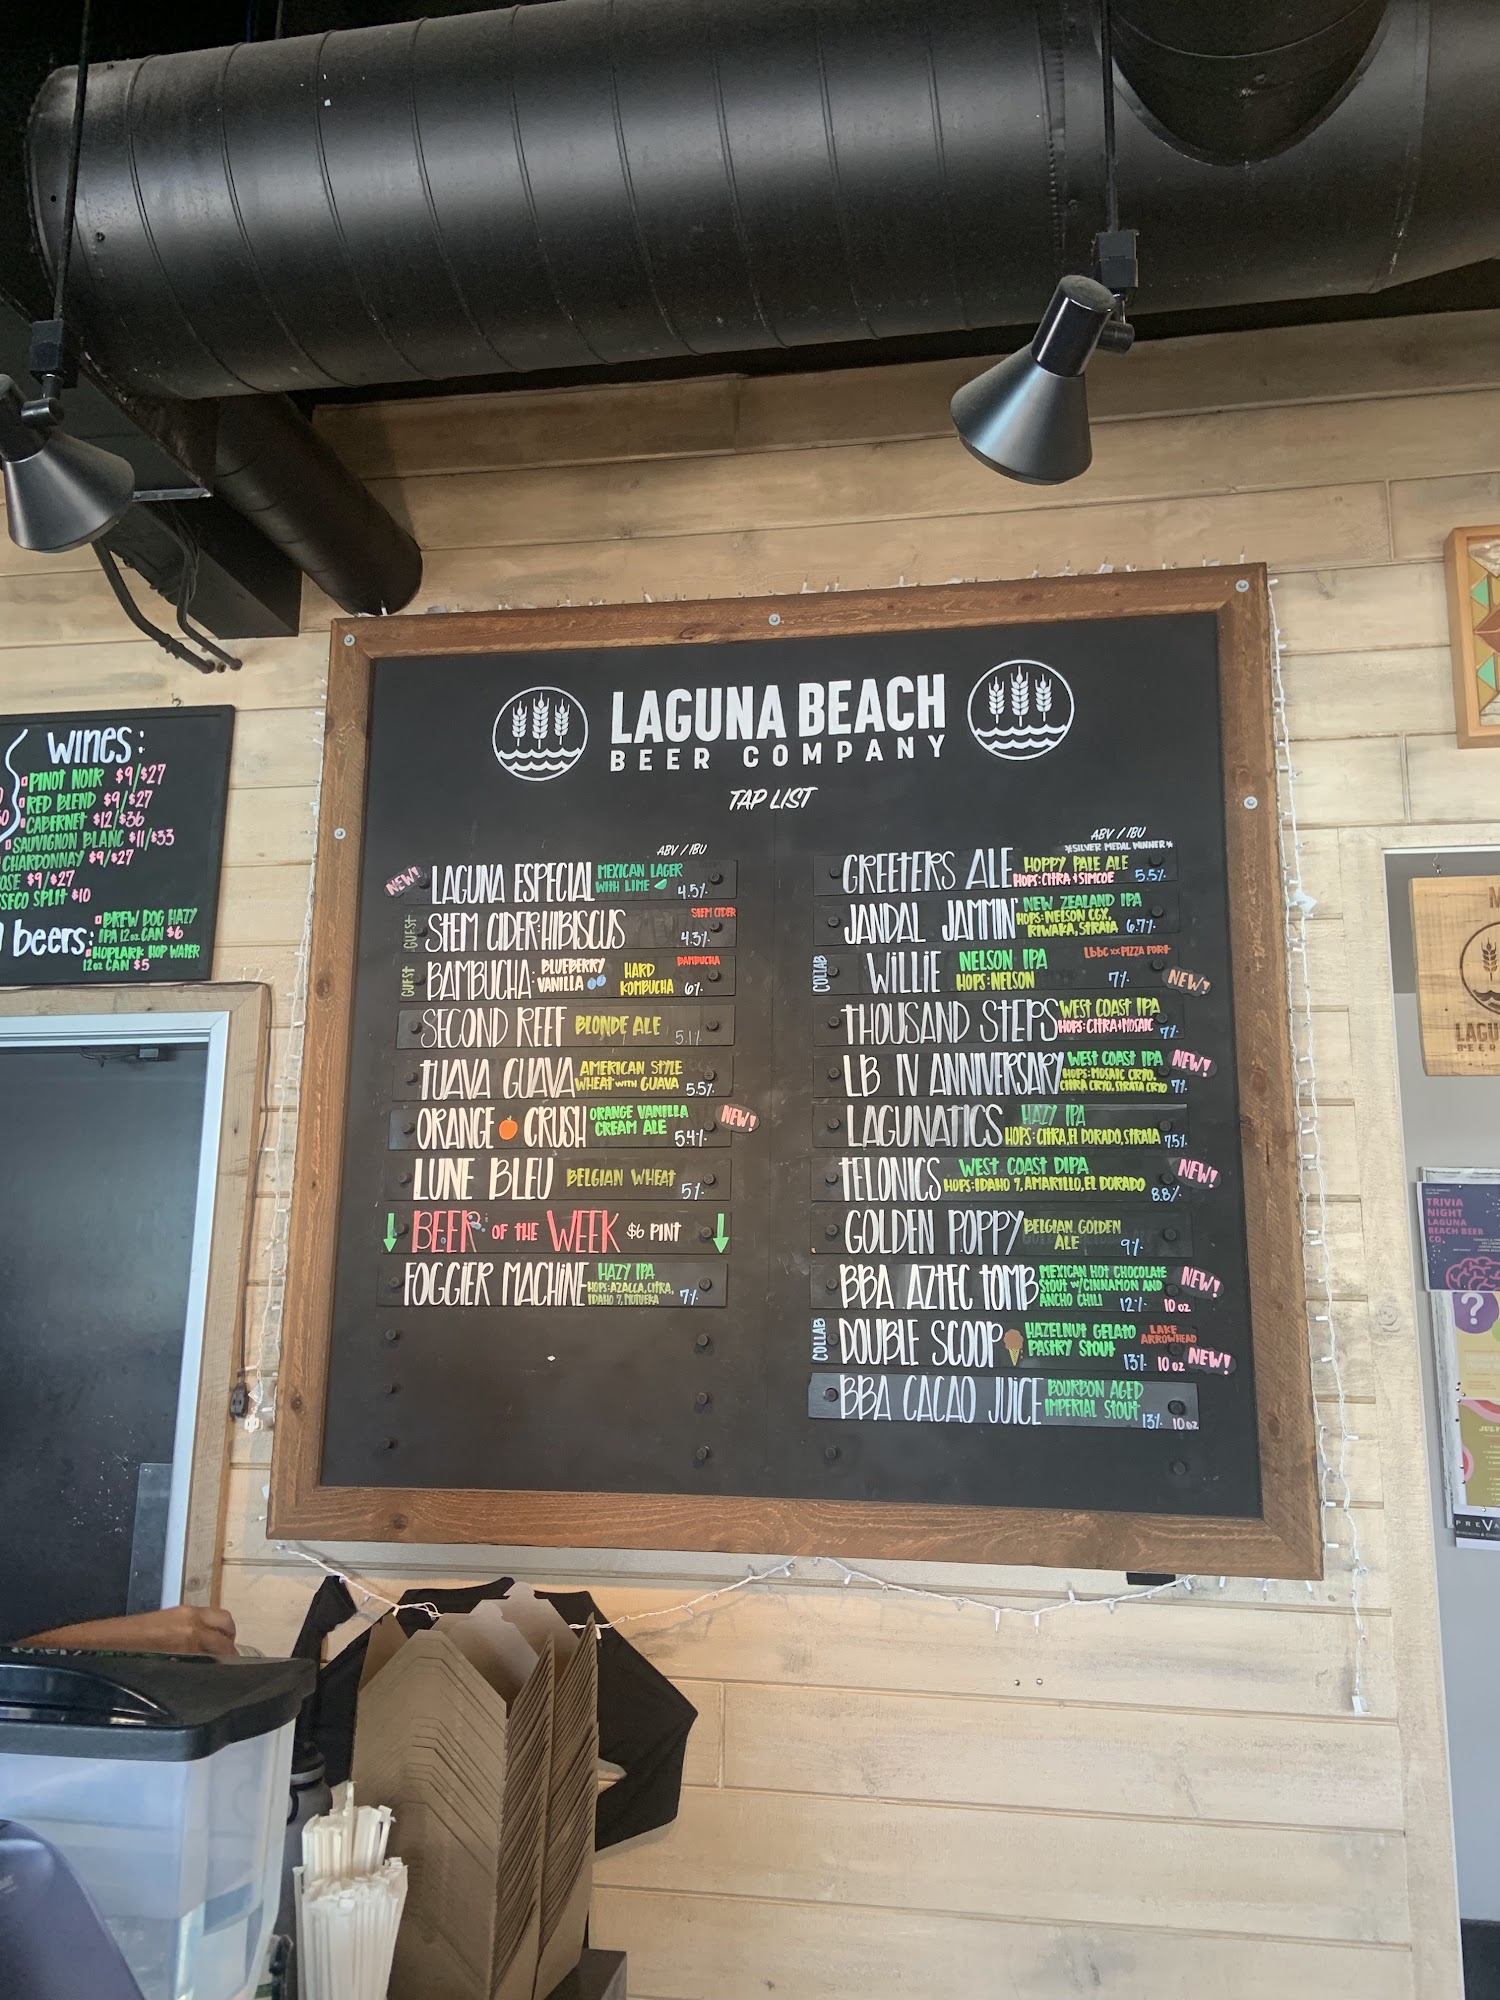 WINES:
PINOT NOIR $9/$27
RED BLEND $9/$27
CABERNET $12/$36
SAUVIGNON BLANC $11/$33
CHARDONNAY $9/$27
OSE $9/$27
SECO SPLIT $10
beers:
BREW DOG HAZY
IPA 12oz CAN $6
HOPLARK HOP WATER
12oz CAN $5
LAGUNA BEACH
BEER COMPANY
TAP LIST
ABV / IBU
NEW! LAGUNA ESPECIAL MEXICAN LAGER
WITH LIME 4.5%
GUEST STEM CIDER: HIBISCUS STEM CIDER
4.3%
GUEST BAMBUCHA: BLUEBERRY VANILLA HARD KOMBUCHA BAMBUCHA
6%
SECOND REEF BLONDE ALE 5.1%
TUAVA GUAVA AMERICAN STYLE
WHEAT WITH GUAVA 5.5%
ORANGE CRUSH ORANGE VANILLA
CREAM ALE 5.4% NEW!
LUNE BLEU BELGIAN WHEAT 5%
BEER OF THE WEEK $6 PINT
FOGGIER MACHINE HAZY IPA
HOPS: AZACCA, CITRA,
IDAHO 7, MOTUEKA 7%
ABV / IBU
*SILVER MEDAL WINNER*
GREETERS ALE HOPPY PALE ALE
HOPS: CITRA & SIMCOE 5.5%
JANDAL JAMMIN' NEW ZEALAND IPA
HOPS: NELSON CGX,
RIWAKA, STRATA 6.7%
COLLAB WILLIE NELSON IPA LBBC XX PIZZA PORT
HOPS: NELSON 7% NEW!
THOUSAND STEPS WEST COAST IPA
HOPS: CITRA & MOSAIC 7%
LB IV ANNIVERSARY WEST COAST IPA NEW!
HOPS: MOSAIC CRYO,
CITRA CRYO, STRATA CRYO 7%
LAGUNATICS HAZY IPA
HOPS: CITRA, EL DORADO, STRATA 7.5%
TELONICS WEST COAST DIPA NEW!
HOPS: IDAHO 7, AMARILLO, EL DORADO 8.8%
GOLDEN POPPY BELGIAN GOLDEN
ALE 9%
BBA AZTEC TOMB MEXICAN HOT CHOCOLATE
STOUT W/CINNAMON AND
ANCHO CHILI 12% 10 oz NEW!
COLLAB DOUBLE SCOOP HAZELNUT GELATO
PASTRY STOUT LAKE ARROWHEAD
13% 10 oz NEW!
BBA CACAO JUICE BOURBON AGED
IMPERIAL STOUT 13% 10 oz
LAGU
BEER
TRIVIA
NIGHT
LAGUNA
BEACH BEER
CO.
?